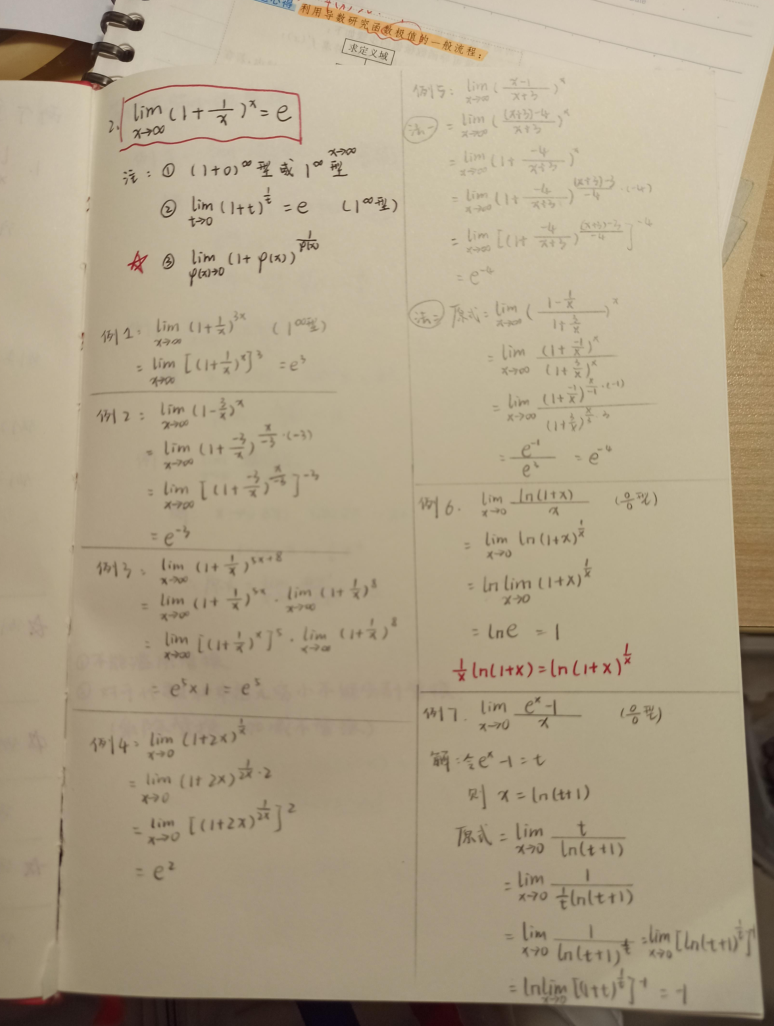 利用导数研究函数极值的一般流程：
求定义域
2. lim x→∞ (1+1/x)^x = e
注：① (1+0)^∞型或1^∞型 x→∞
② lim t→0 (1+t)^(1/t) = e （1^∞型）
☆ ③ lim φ(x)→0 (1+φ(x))^(1/φ(x))
例1: lim x→∞ (1+1/x)^(3x) （1^∞型）
= lim x→∞ [(1+1/x)^x]^3 = e^3
例2: lim x→∞ (1-3/x)^x
= lim x→∞ (1+-3/x)^(x/-3·(-3))
= lim x→∞ [(1+-3/x)^(x/-3)]^-3
= e^-3
例3: lim x→∞ (1+1/x)^(5x+8)
= lim x→∞ (1+1/x)^(5x) · lim x→∞ (1+1/x)^8
= lim x→∞ [(1+1/x)^x]^5 · lim x→∞ (1+1/x)^8
= e^5×1 = e^5
例4: lim x→0 (1+2x)^(1/x)
= lim x→0 (1+2x)^(1/2x·2)
= lim x→0 [(1+2x)^(1/2x)]^2
= e^2
例5: lim x→∞ (x-1/x+3)^x
法一 = lim x→∞ ((x+3)-4/x+3)^x
= lim x→∞ (1+-4/x+3)^x
= lim x→∞ (1+-4/x+3)^((x+3)-3/-4·(-4))
= lim x→∞ [(1+-4/x+3)^((x+3)-3/-4)]^-4
= e^-4
法二 原式= lim x→∞ (1-1/x / 1+3/x)^x
= lim x→∞ (1+-1/x)^x / (1+3/x)^x
= lim x→∞ (1+-1/x)^(x/-1·(-1)) / (1+3/x)^(x/3·3)
= e^-1/e^3 = e^-4
例6. lim x→0 ln(1+x)/x （0/0型）
= lim x→0 ln(1+x)^(1/x)
= ln lim x→0 (1+x)^(1/x)
= lne = 1
1/x ln(1+x)=ln(1+x)^(1/x)
例7. lim x→0 e^x-1/x （0/0型）
解：令e^x-1=t
则 x=ln(t+1)
原式= lim x→0 t/ln(t+1)
= lim x→0 1/(1/t ln(t+1))
= lim x→0 1/ln(t+1)^(1/t) = lim x→0 [ln(t+1)^(1/t)]^-1
= ln lim x→0 [(1+t)^(1/t)]^-1 = -1